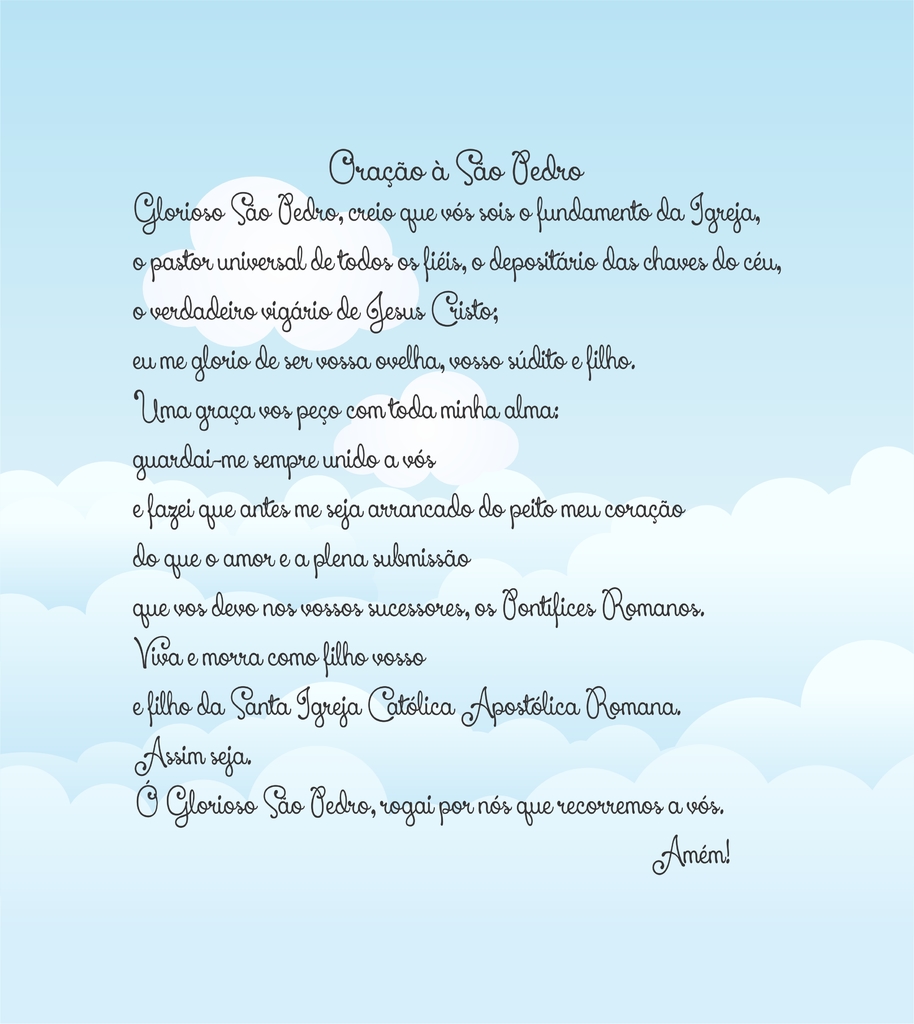 Oração à São Pedro
Glorioso São Pedro, creio que vós sois o fundamento da Igreja,
o pastor universal de todos os fiéis, o depositário das chaves do céu,
o verdadeiro vigário de Jesus Cristo;
eu me glorio de ser vossa ovelha, vosso súdito e filho.
Uma graça vos peço com toda minha alma:
guardai-me sempre unido a vós
e fazei que antes me seja arrancado do peito meu coração
do que o amor e a plena submissão
que vos devo nos vossos sucessores, os Pontífices Romanos.
Viva e morra como filho vosso
e filho da Santa Igreja Católica Apostólica Romana.
Assim seja.
Ó Glorioso São Pedro, rogai por nós que recorremos a vós.
Amém!